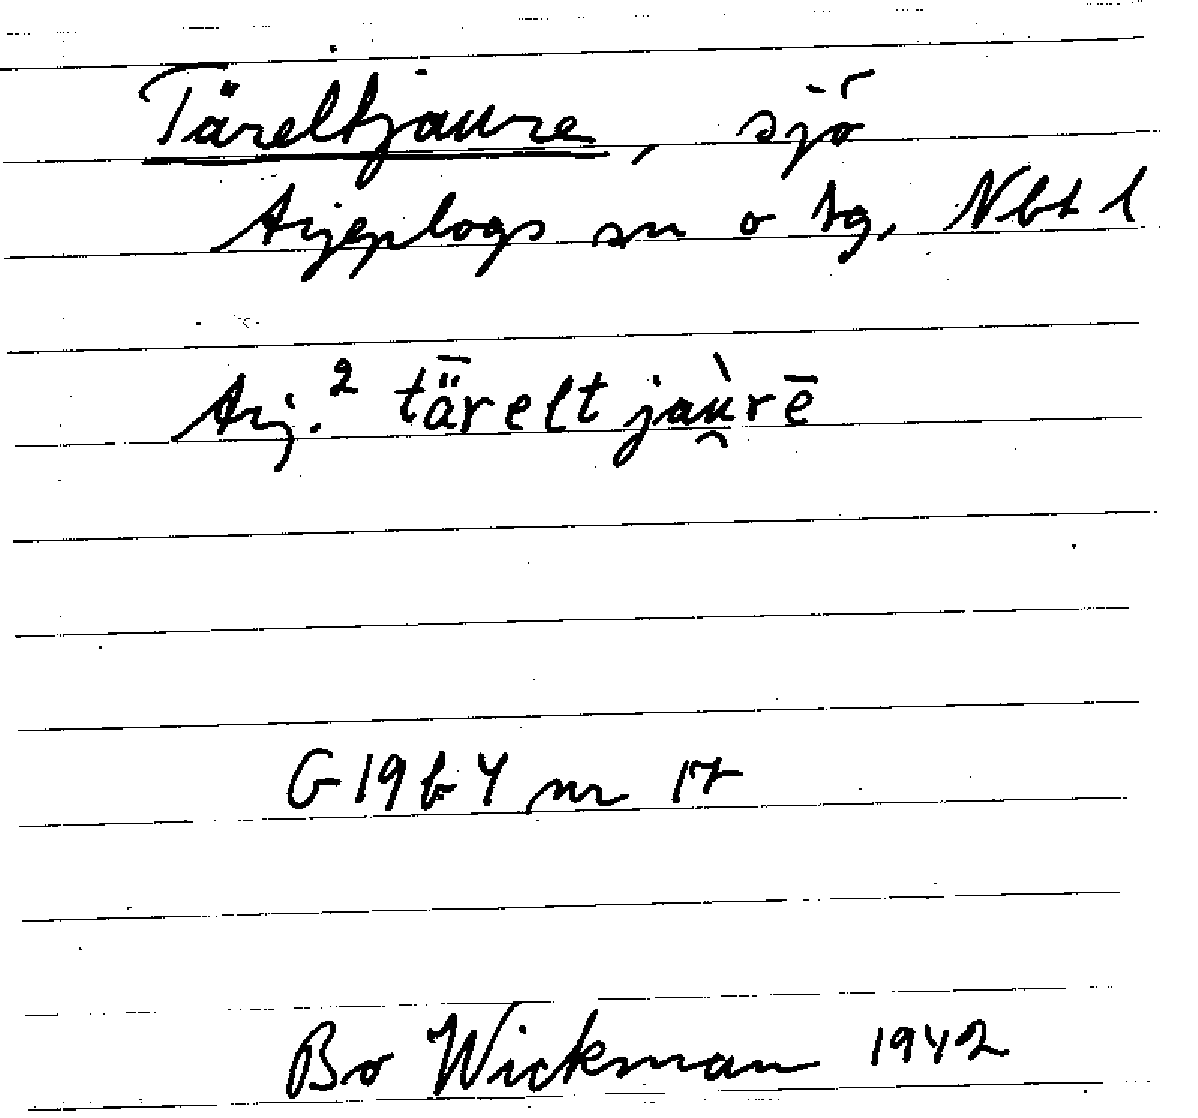 Täreltjaure, sjö
Arjeplogs sn o tg, Nbt l
Arj.² tǟrelt jaù̯rē
G 19 b 4 nr 17
Bo Wickman 1942